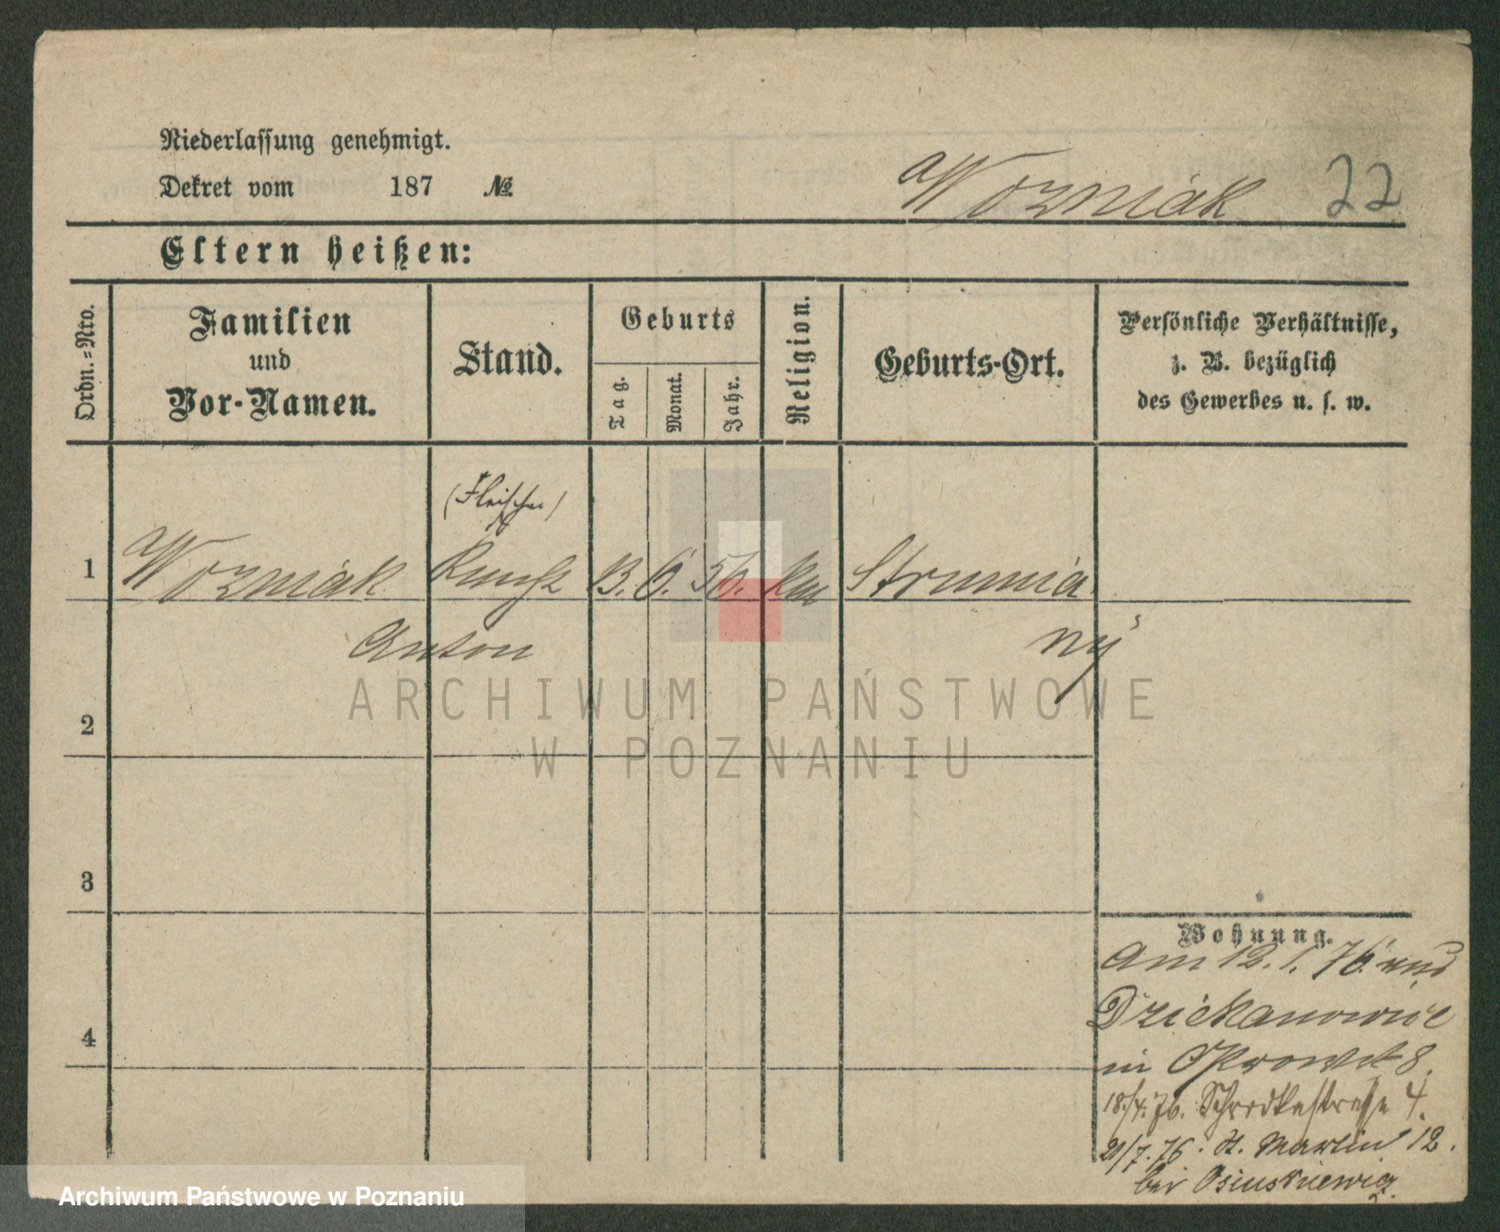 Niederlassung genehmigt.
Dekret vom 187 №
Wozniak 22
Eltern heißen:
Ordn.-Nro.
Familien
und
Vor-Namen.
Stand.
Geburts
Tag.
Monat.
Jahr.
Religion.
Geburts-Ort.
Persönliche Verhältnisse,
z. B. bezüglich
des Gewerbes u. s. w.
(Fleischer)
1 Wozniak 13. 6. 56. Strumia
Anton ny
ARCHIWUM PAŃSTWOWE
W POZNANIU
2
3
4
Wohnung.
Am 12. 1. 76
Dziekanowice
in 8.
18/4. 76. 4.
21/7. 76. St. Martin 12.
bei Osinskiewicz
Archiwum Państwowe w Poznaniu